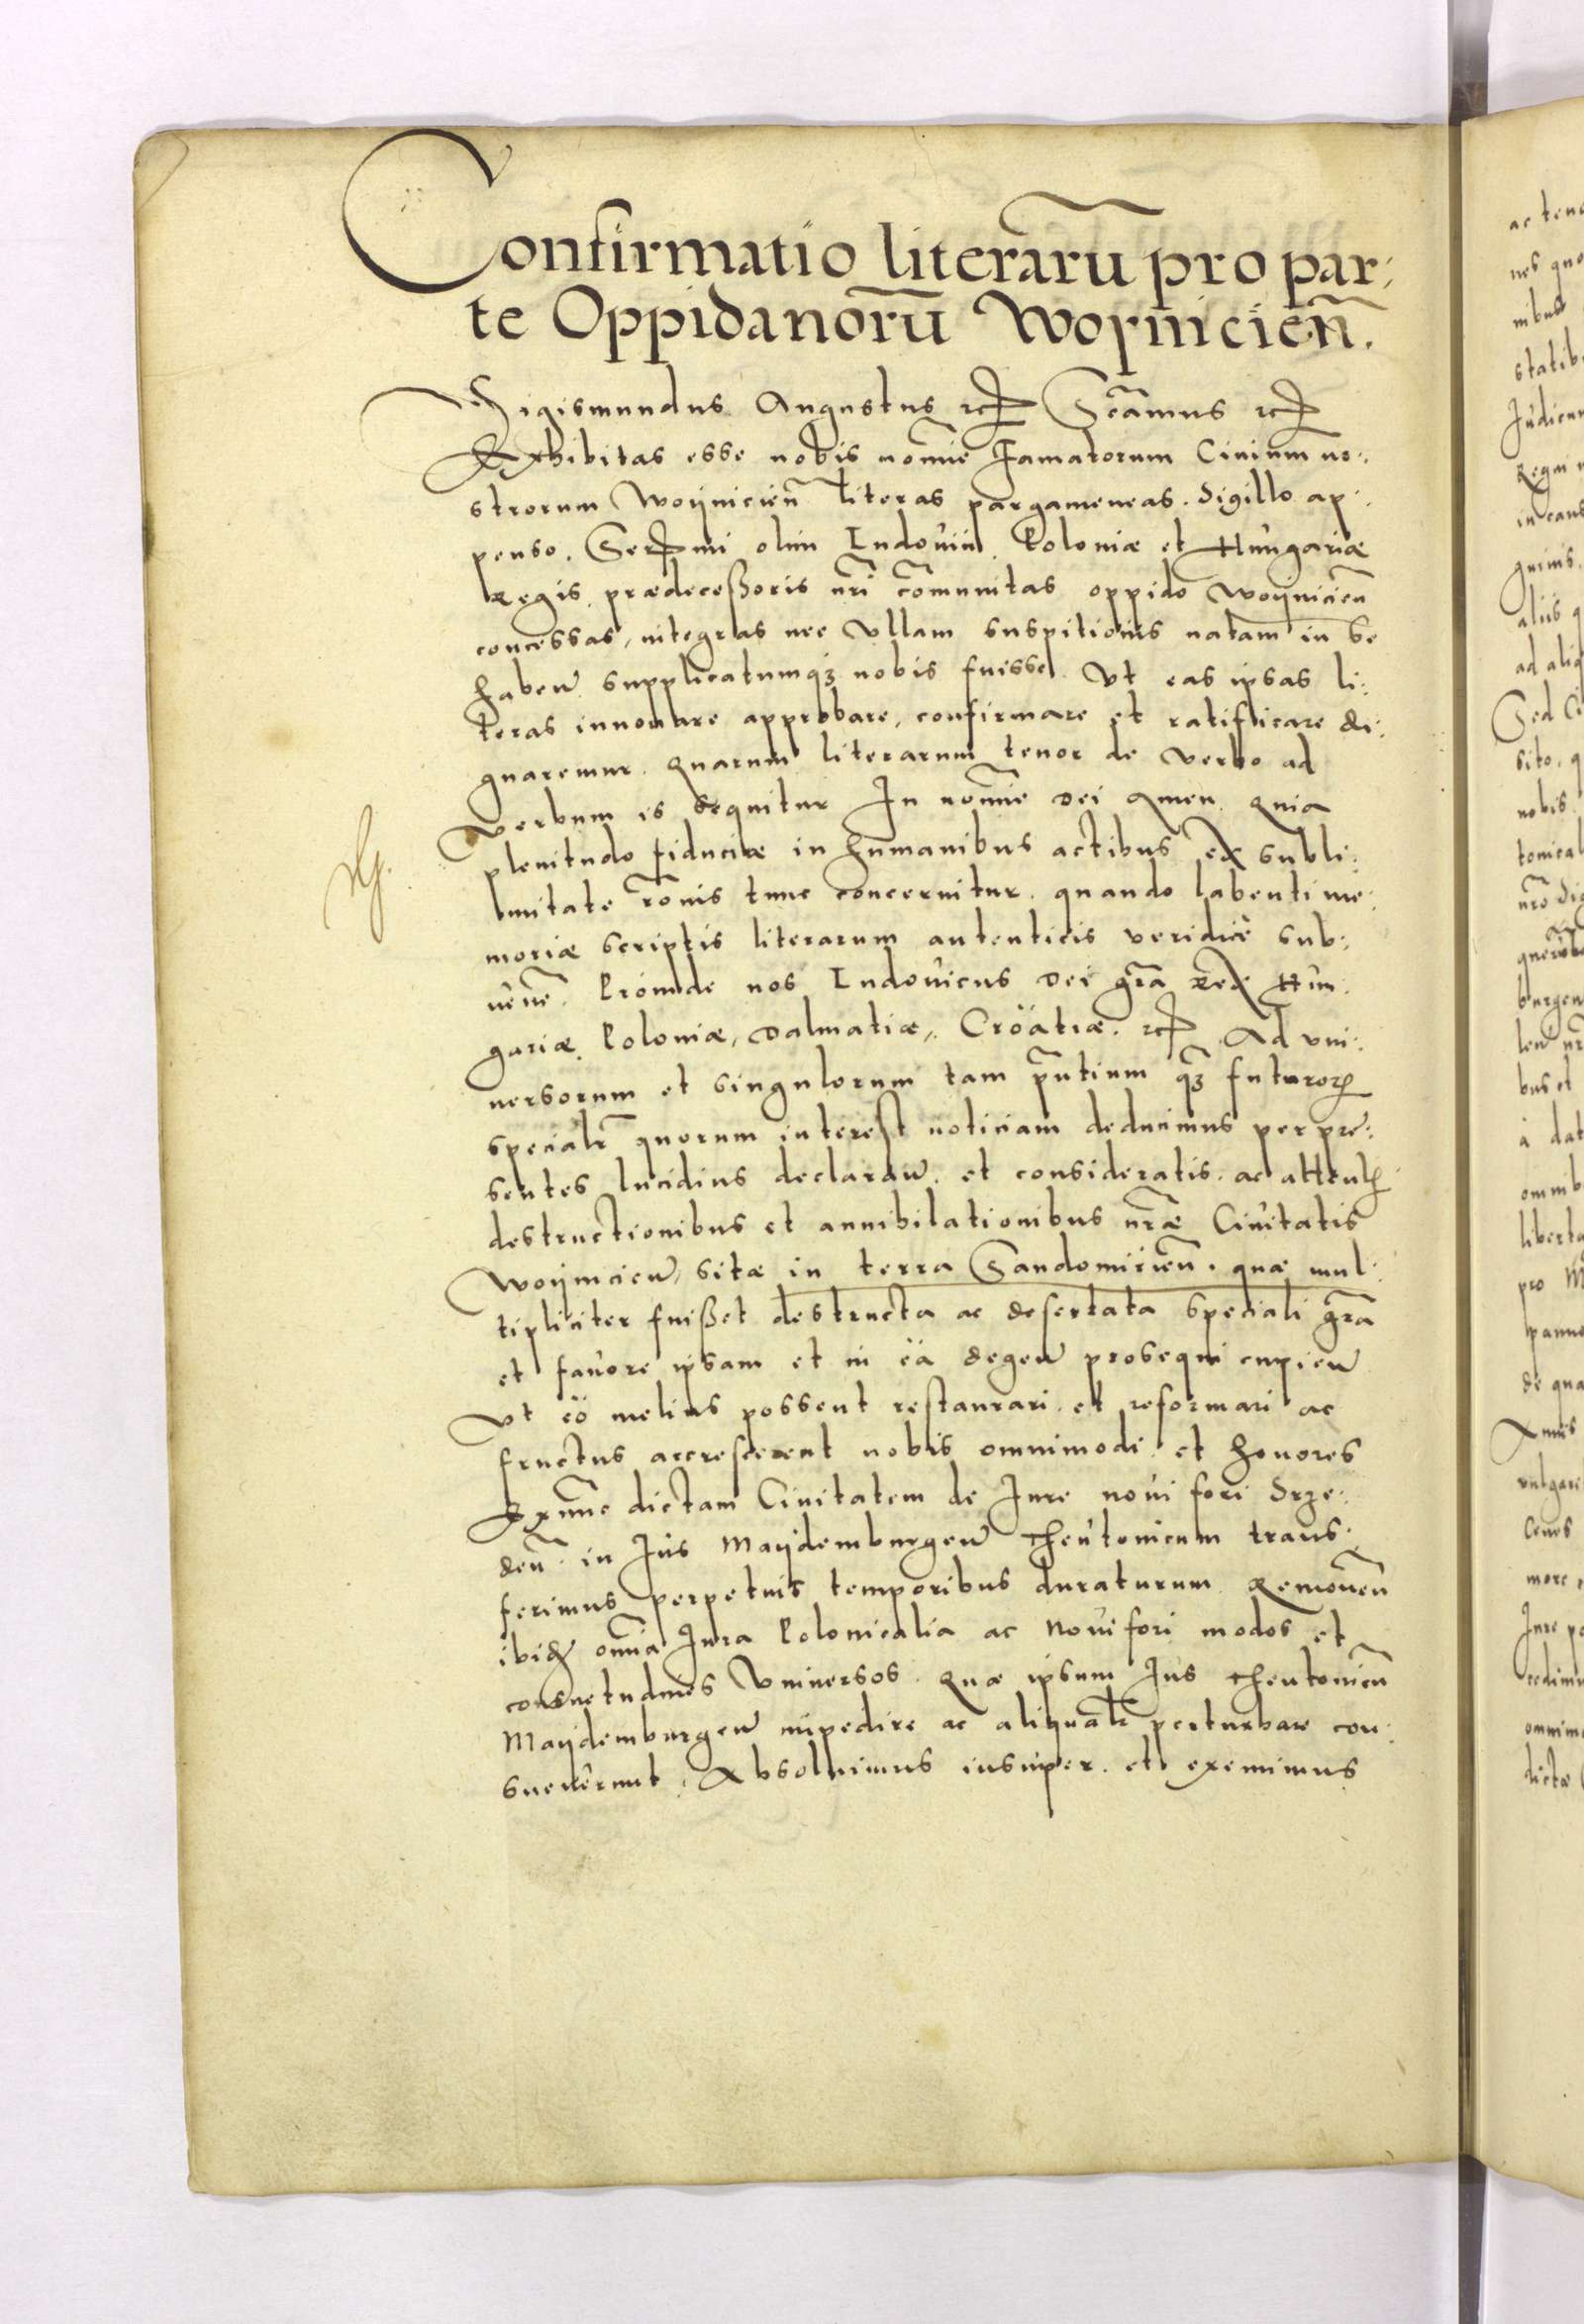 Confirmatio literarū pro par-
te Oppidanorū Woynicień.
Sigismundus Augustus etc Scāmus etc
Exhibitas esse nobis nomīe Famatorum Civium no-
strorum Woynicień literas pargameneas. Sigillo ap-
penso. Sermi olim Ludovici Poloniæ et Hungariæ
Regis, prædecessoris nrī cōmunitas oppido Woynicień
concessas, integras nec Vllam suspitionis natam in se
haben supplicatumq3 nobis fuisse. Vt eas ipsas li-
teras innouare approbare, confirmare et ratificare di-
gnaremur. Quarum literarum tenor de verbo ad
verbum is sequitur In nomīe Dei Amen. Quia
plenitudo fiduciæ in humanibus actibus ex subli-
mitate rōnis tunc concernitur. quando labenti me-
moriæ scriptis literarum autenticis veridicè sub-
uenē. Proinde nos Ludovicus Dei grā Rex Hun-
gariæ, Poloniæ, Dalmatiæ, Cröatiæ. etc Ad vni-
uersorum et singulorum tam prn̄tium q3 futuror
specialr̄ quorum interest noticiam deducimus per præ-
sentes lucidius declaran. et consideratis. ac attentis
destructionibus et annihilationibus nrǣ Civitatis
Woynicien, sitæ in terra Sandomirień. quæ mul-
tipliciter fuisset destructa ac desertata speciali grā
et favore ipsam et in ëa degen prosequi cupien
Vt ëö melius possent restaurari et reformari ac
fructus accrescerent nobis omnimodi et honores
Exnūc dictam Civitatem de Jure novi fori Srze-
deń. in Jus Maydemburgen Theutonicum trans-
ferimus perpetuis temporibus duraturum. Remoueń
ibid omīa Jura Polonicalia ac Novi fori modos et
consuetudines Vniuersos. Quæ ipsum Jus Theutonicū
Maydemburgen impedire ac aliqualr̄ perturbare con-
sueuerunt. Absoluimus insuper. et eximimus